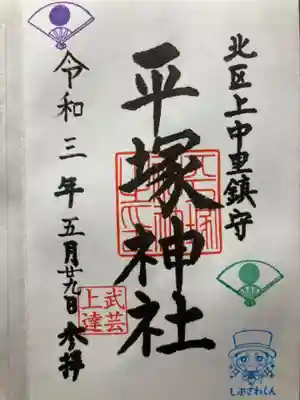 北区上中里鎮守
平塚神社
令和三年五月廿九日奉拝
武芸
上達
しぶさわくん